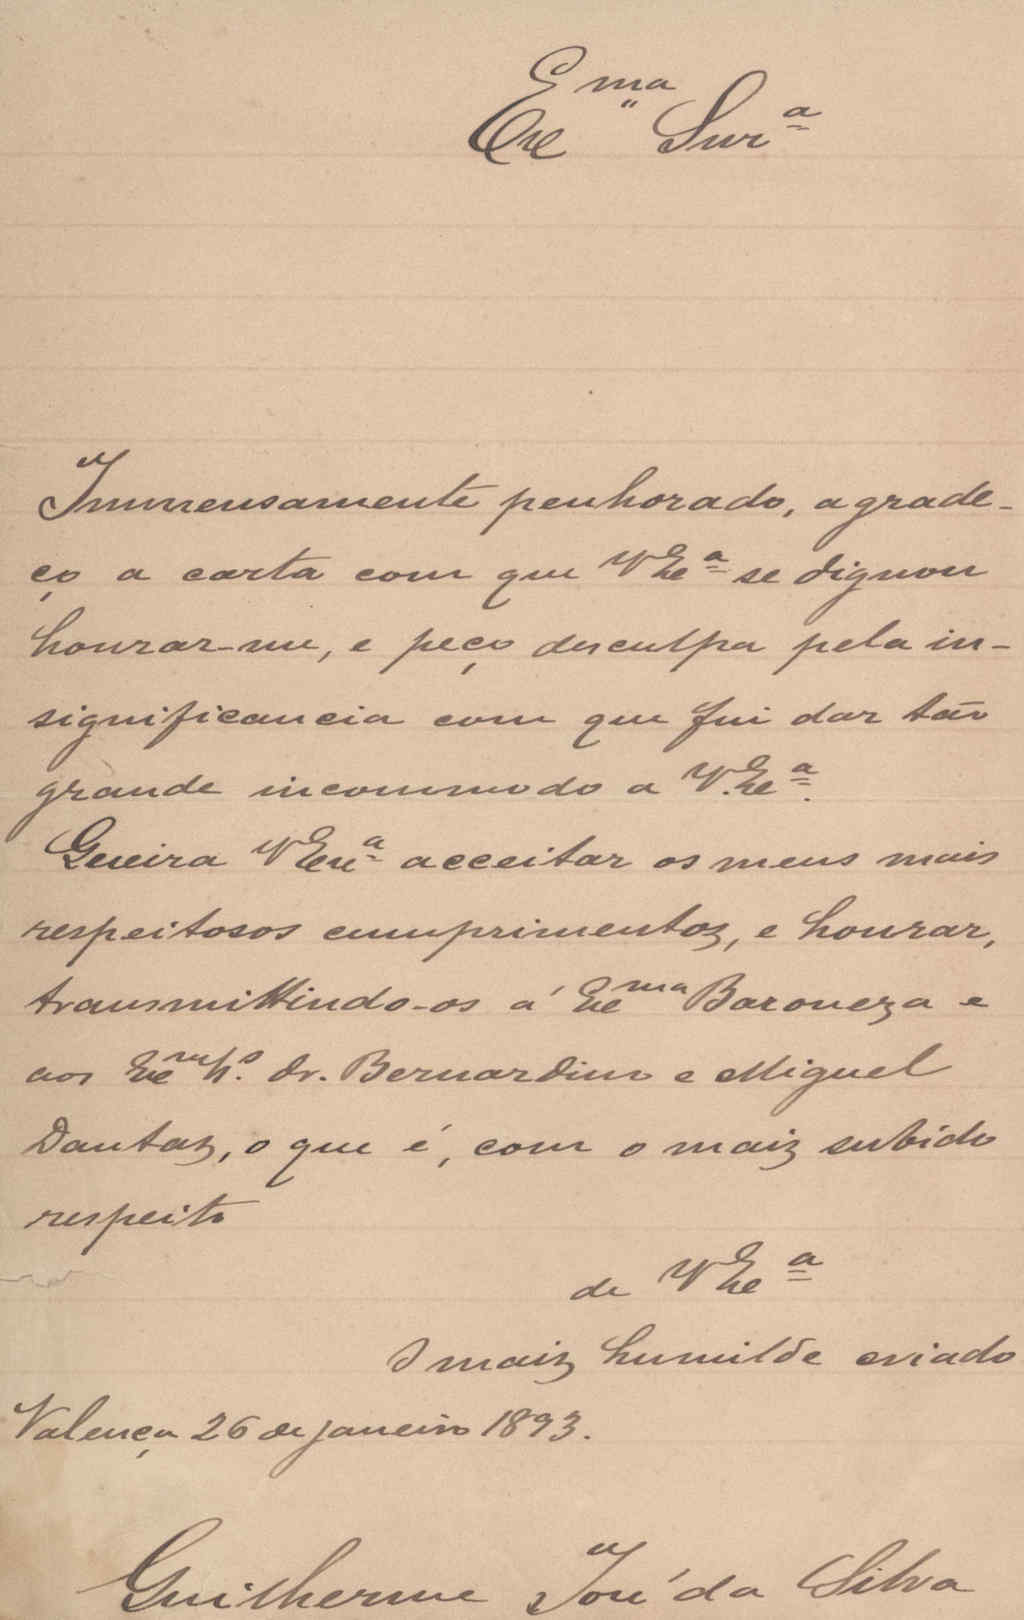 Exc.ma Snr.ª
Immensamente penhorado, agrade-
ço a carta com que V Exc.ª se dignou
honrar-me, e peço desculpa pela in-
significancia com que fui dar tão
grande incommodo a V. Exc.ª.
Queira V Exc.ª acceitar os meus mais
respeitosos cumprimentoz, e honrar,
transmittindo-os á Exc.ma Baroneza e
aos Exc.mos dr. Bernardino e Miguel
Dantaz, o que é, com o maiz subido
respeito
de V Exc.ª
O maiz humilde criado
Valença 26 de janeiro 1893.
Guilherme José da Silva